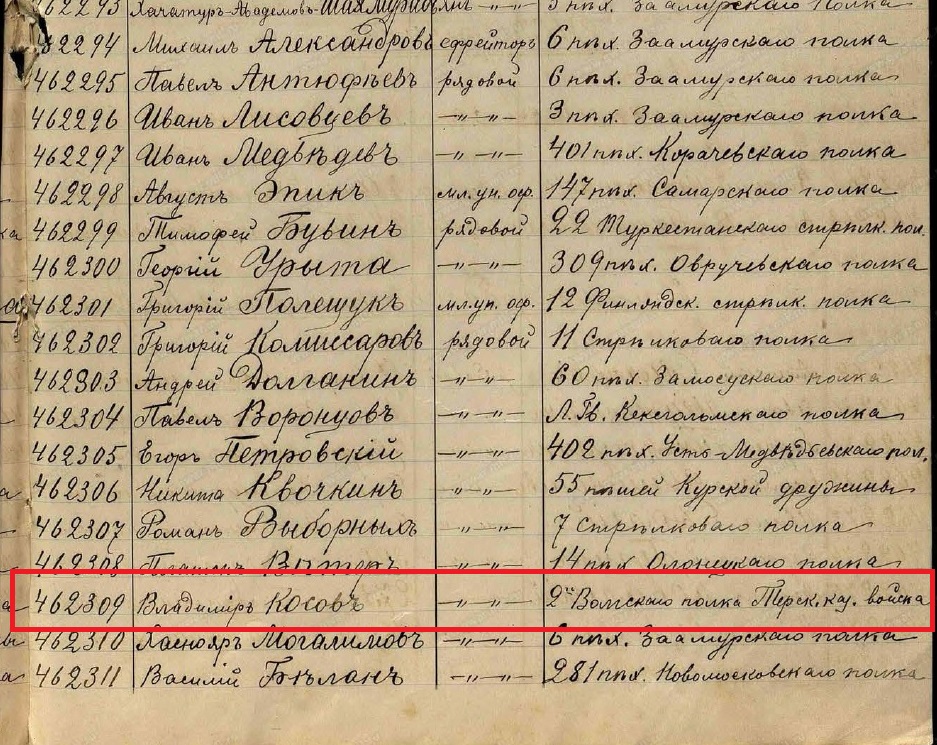 462293 Хачатуръ-Авадемовъ- —〃—〃— 3 пѣх. Заамурскаго полка
462294 Михаилъ Александровъ ефрейторъ 6 пѣх. Заамурскаго полка
462295 Павелъ Антюфѣевъ рядовой 6 пѣх. Заамурскаго полка
462296 Иванъ Лисовцевъ —〃—〃— 3 пѣх. Заамурскаго полка
462297 Иванъ Медвѣдевъ —〃—〃— 401 пѣх. Корачевскаго полка
462298 Августъ Эпикъ мл. ун. оф. 147 пѣх. Самарскаго полка
462299 Тимофей Бувинъ рядовой 22 Туркестанскаго стрѣлк. пол.
462300 Георгій Урыта —〃—〃— 309 пѣх. Овручевскаго полка
462301 Григорій Полещукъ мл. ун. оф. 12 Финляндск. стрѣлк. полка
462302 Григорій Комиссаровъ рядовой 11 Стрѣлковаго полка
462303 Андрей Долганинъ —〃—〃— 60 пѣх. Замосцскаго полка
462304 Павелъ Воронцовъ —〃—〃— Л. Гв. Кексгольмскаго полка
462305 Егоръ Петровскій —〃—〃— 402 пѣх. Усть-Медвѣдьевскаго пол.
462306 Никита Квочкинъ —〃—〃— 55 пѣшей Курской дружины
462307 Романъ Выборныхъ —〃—〃— 7 Стрѣлковаго полка
462308 Платонъ —〃—〃— 14 пѣх. Олонецкаго полка
462309 Владиміръ Косовъ —〃—〃— 2го Волгскаго полка Терск. каз. войска
462310 Хаснояръ Могалимовъ —〃—〃— 6 пѣх. Заамурскаго полка
462311 Василій Бѣланъ —〃—〃— 281 пѣх. Новомосковскаго полка